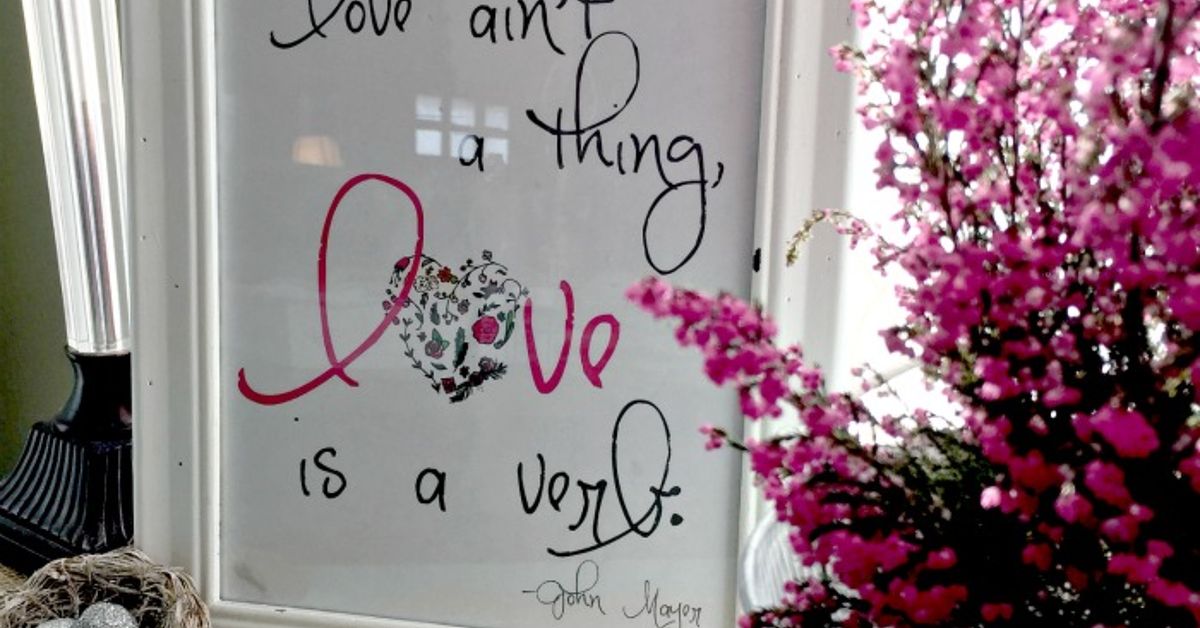 love ain't
a thing,
love
is a verb.
-John Mayer